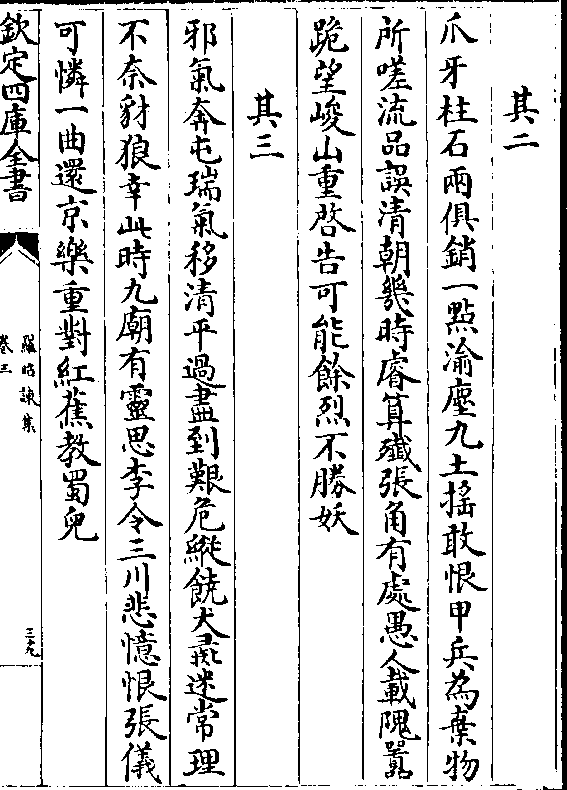 其二
爪牙柱石兩俱銷一點渝塵九土搖敢恨甲兵為棄物
所嗟流品誤清朝幾時睿算殲張角有處愚人載隗囂
跪望峻山重啓告可能餘烈不勝妖
其三
邪氣奔屯瑞氣移清平過盡到艱危縱饒犬彘迷常理
不奈豺狼幸此時九廟有靈思李令三川悲憶恨張儀
可憐一曲還京樂重對紅蕉教蜀兒
欽定四庫全書
羅昭諫集
卷三
三九